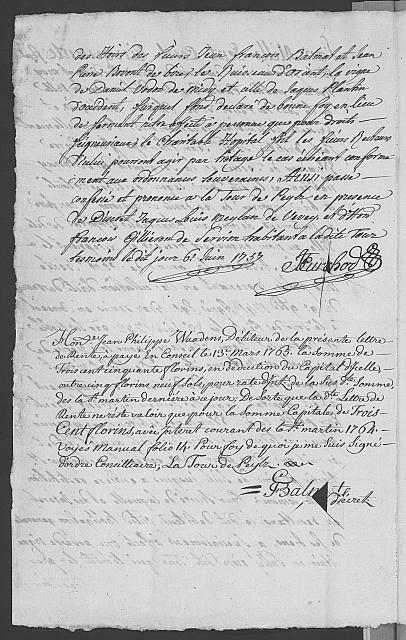 des hoirs des sieurs Jean françois Balmat et Jean
Pierre des bize; le Ruisseau d'orient, la vigne
de Daniel de et celle de Jaques Plantin
d'occident, fond declaré de bonne foy en lieu
de n'estre affecté à personne que pour droits
seigneuriaux; le Charitable Hopital et les sieurs Recteurs
d'iceluy pourront agir par le cas écheant conforme-
ment aux ordonnances souveraines; Ainsi passé
confessé et prononcé a la Tour de Peylz en presence
de Discret Jaques Louis Meylan de Vevey, et d'Hon
François Gillieron de Servion habitant a la dite Tour
temoins le dit jour 6e Juin 1757
Hond.e Jean Philippe Wuadens, Debiteur de la presente lettre
de Rente, à payé en Conseil le 13e. Mars 1765. la Somme de
Trois cent cinquante florins, en deduction du Capital d'icelle,
outre cinq florins neuf Sols, pour rate d'int. de la Sus d.te Somme,
des la s.t martin derniere à ce jour; De sorte que la d.te Lettre de
Rente ne reste valoir que pour la Somme Capitale de Trois
Cent florins, avec interet courant des la s.t martin 1764.
Voyés Manual folio 14. Pour foy de quoi je me suis Signé
d'ordre Consilliaire; La Tour de Peylz
secret.